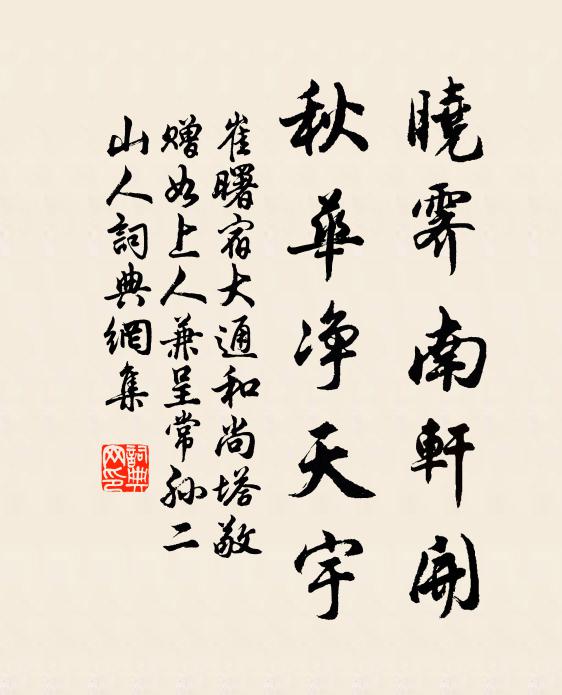 曉霽南軒開
秋華净天宇
崔曙宿大通和尚塔敬
贈如上人兼呈常孫二
山人詞典網集
詞典网印